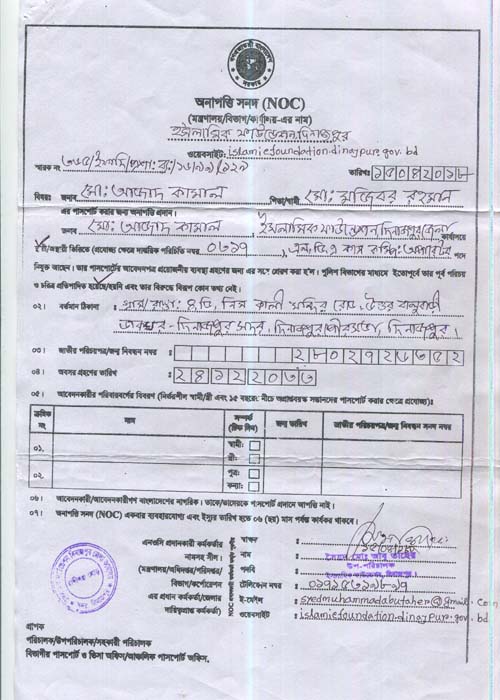 অনাপত্তি সনদ (NOC)
(মন্ত্রণালয়/বিভাগ/কার্যালয়-এর নাম)
ইসলামিক ফাউন্ডেশন, দিনাজপুর
ওয়েবসাইট: islamicfoundation.dinajpur.gov.bd
স্মারক নং
তারিখ: ১৫০৪২০১৮
বিষয়: জনাব মো: আজাদ কামাল পিতা/স্বামী মো: মজিবর রহমান
এর পাসপোর্ট করার জন্য অনাপত্তি প্রদান।
জনাব মো: আজাদ কামাল ইসলামিক ফাউন্ডেশন দিনাজপুর জেলা কার্যালয়ে
স্থায়ী/অস্থায়ী ভিত্তিতে (প্রযোজ্য ক্ষেত্রে সামরিক পরিচিতি নম্বর ০৬১৭ পদে
নিযুক্ত আছেন। তার পাসপোর্টের আবেদনপত্র প্রয়োজনীয় ব্যবস্থা গ্রহণের জন্য এর সংগে প্রেরণ করা হ'ল। পুলিশ বিভাগের মাধ্যমে ইতোপূর্বে তার পূর্ব পরিচয়
ও চরিত্র প্রতিপাদিত হয়েছে/হয়নি এবং তার বিরুদ্ধে বিরূপ কোন তথ্য নেই।
০২। বর্তমান ঠিকানা : কালী মন্দির রোড, উত্তর বালুবাড়ী
ডাকঘর - দিনাজপুর সদর, দিনাজপুর পৌরসভা, দিনাজপুর।
০৩। জাতীয় পরিচয়পত্র/জন্ম নিবন্ধন নম্বর :
০৪। অবসর গ্রহণের তারিখ : ২৪১২২০৩৩
০৫। আবেদনকারীর পরিবারবর্গের বিবরণ (নির্ভরশীল স্বামী/স্ত্রী এবং ১৫ বছরের নীচে অপ্রাপ্তবয়স্ক সন্তানদের পাসপোর্ট করার ক্ষেত্রে প্রযোজ্য):
ক্রমিক নং নাম সম্পর্ক (টিক দিন) জন্ম তারিখ জাতীয় পরিচয়পত্র/জন্ম নিবন্ধন সনদ নম্বর
০১. স্বামী:
স্ত্রী:
০২. পুত্র:
কন্যা:
০৬। আবেদনকারী/আবেদনকারীগণ বাংলাদেশের নাগরিক। তাকে/তাদেরকে পাসপোর্ট প্রদানে আপত্তি নাই।
০৭। অনাপত্তি সনদ (NOC) একবার ব্যবহারযোগ্য এবং ইস্যুর তারিখ হতে ০৬ (ছয়) মাস পর্যন্ত কার্যকর থাকবে।
এনওসি প্রদানকারী কর্মকর্তার স্বাক্ষর :
নামসহ সীল। নাম : সৈয়দ মোঃ আবু তাহের
(মন্ত্রণালয়/অধিদপ্তর/পরিদপ্তর/ পদবি : উপ-পরিচালক
বিভাগ/কর্পোরেশন টেলিফোন নম্বর :
এর প্রধান কর্মকর্তা/জেলার ই-মেইল : syedmuhammadabutaher@gmail.com
দায়িত্বপ্রাপ্ত কর্মকর্তা) ওয়েবসাইট : islamicfoundation.dinajpur.gov.bd
প্রাপক
পরিচালক/উপপরিচালক/সহকারী পরিচালক
বিভাগীয় পাসপোর্ট ও ভিসা অফিস/আঞ্চলিক পাসপোর্ট অফিস,